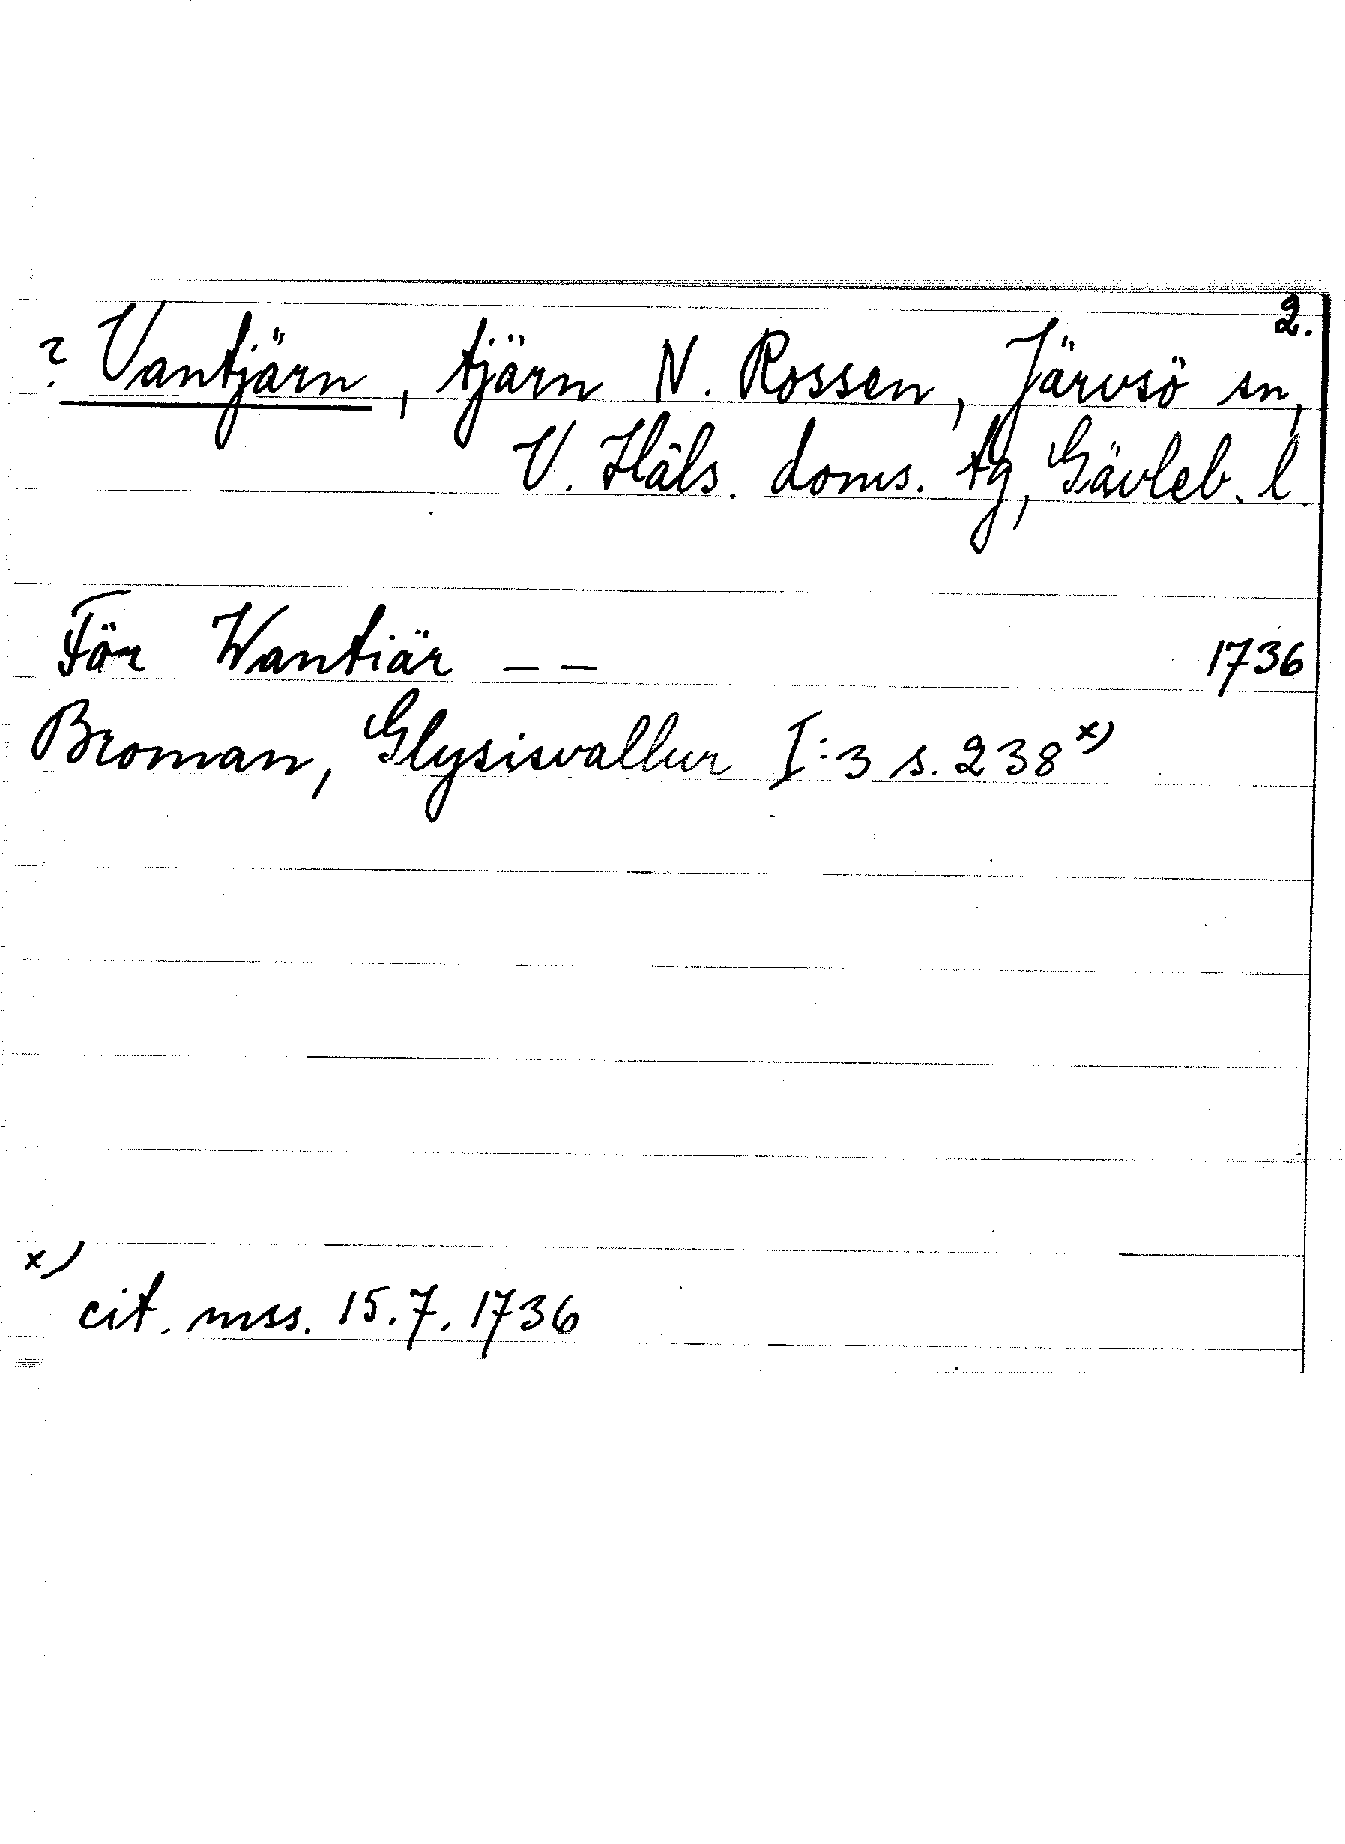 2.
? Vantjärn, tjärn N. Rossen, Järvsö sn,
V. Häls. doms. tg, Gävleb. l.
För Wantiär – – 1736
Broman, Glysisvallur I:3 s. 238 x)
x)
cit. mss. 15.7.1736